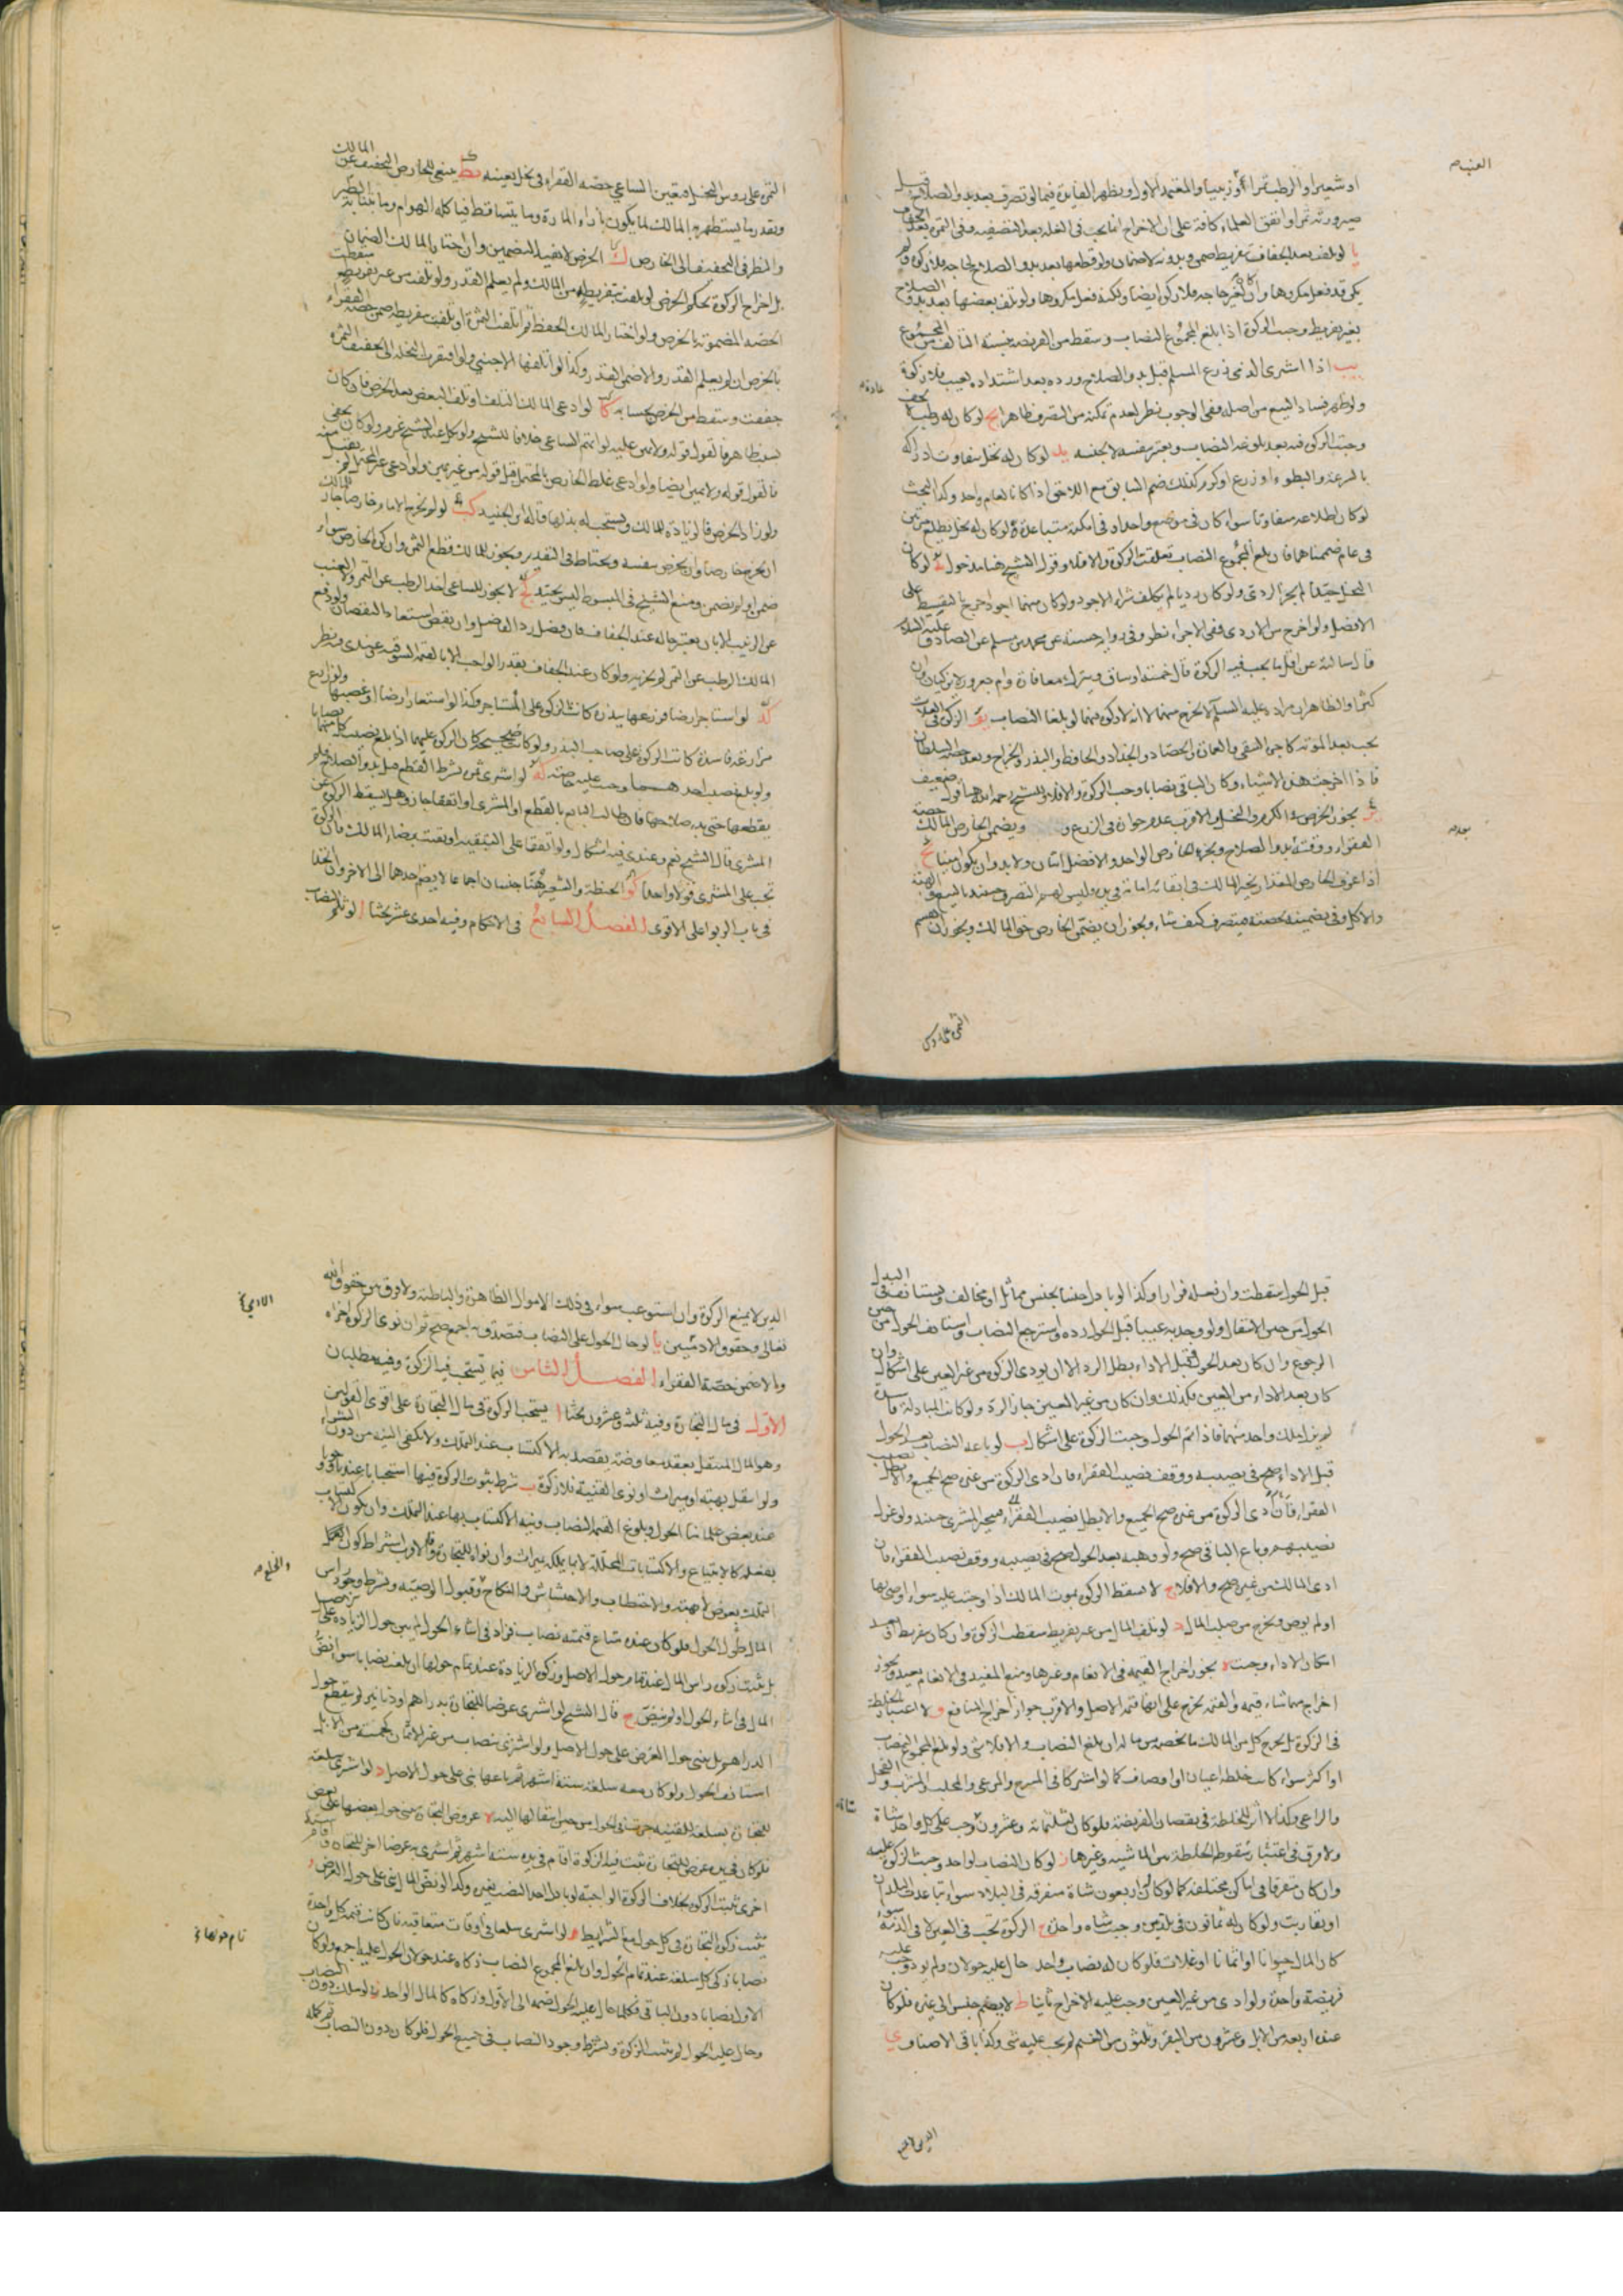 العنب
او شعيرا و الرطب تمرا او زبيبا و المعتمد الاول و يظهر الفايدة فيما لو تصرف بعد بدو الصلاح قبل
صيرورته تمرا و اتفق العلماء كافة على ان الاخراج انما يجب فى الغلة بعد التصفية و فى التمر بعد الجفاف
يا لو تلف بعد الجفاف بتفريط ضمن و بدونه لا ضمان و لو قطعها بعد بدو الصلاح لحاجة فلا زكوة و لم
يكن قد فعل مكروها و ان كان لغير حاجة فلا زكوة ايضا و لكنه فعل مكروها و لو تلف بعضها بعد بدو الصلاح
بغير تفريط وجبت الزكوة اذا بلغ المجموع النصاب و سقط من الفريضة بنسبة التالف من المجموع
يب اذا اشترى الذمى زرع المسلم قبل بدو الصلاح و رده بعد اشتداده بعيب فلا زكوة
و لو ظهر فساد البيع من اصله ففى الوجوب نظر لعدم تمكنه من التصرف ظاهرا يج لو كان له رطب لا يجفف
وجبت الزكوة فيه بعد بلوغه النصاب و يعتبر بنفسه لا بجنسه يد لو كان له نخل يتفاوت ادراكه
بالسرعة و البطوء او زرع او كرم كذلك ضم السابق مع اللاحق اذا كانا لعام واحد و كذا البحث
لو كان اطلاعه متفاوتا سواء كان فى موضع واحد او فى امكنة متباعدة و لو كان له نخل يطلع مرتين
فى عام ضممناهما فان بلغ المجموع النصاب تعلقت الزكوة و الا فلا و قول الشيخ هنا مدخول يه لو كان
النخل جيدا لم يجز الردى و لو كان رديا لم يكلف شراء الاجود و لو كان منهما اجود اخرج بالتقسيط على
الافضل و لو اخرج من الاردى ففى الاجزاء نظر و فى رواية حسنة عن محمد بن مسلم عن الصادق عليه السلام
قال سالته عن اقل ما يجب فيه الزكوة قال خمسة اوساق و يترك معافارة و ام جعرور لا يزكيان و ان
كثرا و الظاهر ان مراده عليه السلم الا يخرج منهما لا انه لا زكوة فيهما لو بلغا النصاب يو الزكوة فى الغلات
يجب بعد المؤنة كاجرة السقى و العمارة و الحصاد و الجذاذ و الحافظ و البذر و الخراج و بعد حصة السلطان
فاذا اخرجت هذه الاشياء و كان الباقى نصابا وجبت الزكوة و الا فلا و للشيخ رحمه الله هنا قول ضعيف
يز يجوز الخرص فى الكرم و النخل و الاقرب عدم جوازه فى الزرع و و يضمن الخارص المالك حصة
الفقراء و وقته بدو الصلاح و يجزى الخارص الواحد و الافضل اثنان و لا بد و ان يكون امينا يح
اذا عرف الخارص المقدار يخير المالك فى ابقائه امانة فى يده و ليس لهم التصرف حينئذ بالبيع و الهبة
و الاكل و فى تضمينه حصته فيتصرف كيف شاء و يجوز ان يضمن الخارص حق المالك و يجوز ان يقسم
الثمرة على روس
الثمرة على روس النخل فيتعين الساعى حصة الفقراء فى نخل بعينه يط ينبغى للخارص التخفيف عن المالك
و بقدر ما يستظهر به المالك لما يكون بازاء المارة و ما يتساقط فياكله الهوام و ما ينتابه الطير
و النظر فى التخفيف الى الخارص ك الخرص لا يفيد التضمين و ان اختار المالك الضمان
بل اخراج الزكوة بحكم الخرص لو تلفت بتفريطه من المالك و لم يعلم القدر و لو تلفت من غير تفريط سقطت
الحصة المضمونة بالخرص و لو اختار المالك الحفظ ثم اتلف الثمرة او تلفت بتفريطه ضمن حصة الفقراء
بالخرص ان لم يعلم القدر و الا ضمن القدر و كذا لو اتلفها الاجنبى و لو افتقرت النخلة الى تخفيف الثمرة
خففت و سقط من الخرص بحسابه كا لو ادعى المالك التلف او تلف البعض بعد الخرص فان كان
بسبب ظاهر فالقول قوله و لا يمين عليه لو اتهم الساعى خلافا للشيخ و لو نكل عند الشيخ غرم و لو كان يخفى
فالقول قوله و لا يمين ايضا و لو ادعى غلط الخارص بالمحتمل قبل قوله من غير يمين و لو ادعى غير المحتمل لم يقبل منه
و لو زاد الخرص فالزيادة للمالك و يستحب له بذلها قاله ابن الجنيد كب لو لم يخرج الامام خارصا جاز للمالك
ان يخرج خارصا و ان يخرص بنفسه و يحتاط فى التقدير و يجوز للمالك قطع الثمرة و ان كره الخارص سواء
ضمن او لم يضمن و منع الشيخ فى المبسوط ليس بجيد كج لا يجوز للساعى اخذ الرطب عن التمر و لا العنب
عن الزبيب الا بان يعتبر حاله عند الجفاف فان فضل رد الفاضل و ان نقص استعاد النقصان و لو دفع
المالك الرطب عن التمر لم يجزيه و لو كان عند الجفاف بقدر الواجب الا بالقيمة السوقية عندى و نظر
كد لو استاجر ارضا فزرعها ببذره كانت الزكوة على المستاجر و كذا لو استعار ارضا او غصبها و لو زارع
مزارعة فاسدة كانت الزكوة على صاحب البذر و لو كانت صحيحة كان الزكوة عليهما اذا بلغ نصيب كل منهما نصابا
و لو بلغ نصيب احدهما وجبت عليه خاصة كه لو اشترى ثمرة بشرط القطع قبل بدو الصلاح فلم
يقطعها حتى بدا صلاحها فان طالب البايع بالقطع او المشترى او اتفقا جاز و هل يسقط الزكوة عن
المشترى قال الشيخ نعم و عندى فيه اشكال و لو اتفقا على التبقية او بقيت برضاء المالك فالزكوة
تجب على المشترى قولا واحدا كو الحنطة و الشعير هنا جنسان اجماعا لا يضم احدهما الى الاخر و ان اتحدا
فى باب الربوا على الاقوى الفصل السابع فى الاحكام و فيه احدى عشر بحثا ا لو ثلم النصاب
قبل الحول سقطت و ان فعله فرارا و كذا لو بادل جنسا بجنس مماثل او مخالف و يستانف فى البدل
الحول من حين الانتقال و لو وجد به عيبا قبل الحول رده و استرجع النصاب و استانف الحول من حين
الرجوع و ان كان بعد الحول و قبل الاداء بطل الرد الا ان يودى الزكوة من غير العين على اشكال و ان
كان بعد الاداء من العين فكذلك و ان كان من غير العين جاز الرد و لو كانت المبادلة فاسدة
لم يزل ملك واحد منهما فاذا تم الحول وجبت الزكوة على اشكال ب لو باعه النصاب بعد الحول
قبل الاداء صح فى نصيبه و وقف نصيب الفقراء فان ادى الزكوة من غيره صح الجميع و الا بطل نصيب
الفقراء فان ادى الزكوة من غيره صح الجميع و الا بطل نصيب الفقراء فيتخير المشترى حينئذ و لو عزل
نصيبهم و باع الباقى صح و لو وهبه بعد الحول صح فى نصيبه و وقف نصيب الفقراء فان
ادى المالك من غيره صح و الا فلا ج لا تسقط الزكوة بموت المالك اذا وجبت عليه سواء اوصى بها
او لم يوص و تخرج من صلب المال د لو تلف المال من غير تفريط سقطت الزكوة و ان كان بتفريط او بعد
امكان الاداء وجبت ه يجوز اخراج القيمة فى الانعام و غيرها و منع المفيد فى الانعام بعيد و يجوز
اخراج مهما شاء قيمة و القيمة تخرج على انها قيمة لا اصل و الاقرب جواز اخراج المنافع و لا اعتبار بالخلطة
فى الزكوة بل يخرج كل من المالك ما يخصه من ماله ان بلغ النصاب و الا فلا شى و لو بلغ المجموع النصاب
او اكثر سواء كانت خلطة اعيان او اوصاف كما لو اشتركا فى المسرح و المرعى و المحلب و المشرب و الفحل
و الراعى و كذا لا اثر للخلطة فى نقصان الفريضة فلو كان لثلثة مائة و عشرون وجب على كل واحد شاة
و لا فرق فى اعتبار سقوط الخلطة بين الماشية و غيرها ز لو كان النصاب لواحد وجبت الزكوة عليه
و ان كان متفرقا فى اماكن مختلفة كما لو كان له اربعون شاة متفرقة فى البلاد سواء تباعدت البلدان
او تقاربت و لو كان له ثمانون فى بلدين وجبت شاة واحدة ح الزكوة تجب فى العين لا فى الذمة سواء
كان المال حيوانا او اثمانا او غلات فلو كان له نصاب واحد حال عليه حولان و لم يود وجب عليه
فريضة واحدة و لو ادى من غير العين وجب عليه الاخراج ثانيا ط لا يضم جنس الى غيره فلو كان
عنده اربعة من الابل و عشرون من البقر و ثلثون من الغنم لم يجب عليه شى و كذا باقى الاصناف ى
الدين لا يمنع
الدين لا يمنع الزكوة و ان استوعب سواء فى ذلك الاموال الظاهرة و الباطنة و لا فرق بين حقوق الله
تعالى و حقوق الادميين يا لو حال الحول على النصاب فتصدق به اجمع صح ثم ان نوى الزكوة اجزاه
و الا ضمن حصة الفقراء الفصل الثامن فيما تستحب فيه الزكوة و فيه مطلبان
الاول فى مال التجارة و فيه ثلثة و عشرون بحثا ا يستحب الزكوة فى مال التجارة على اقوى القولين
و هو المال المنتقل بعقد معاوضة يقصد به الاكتساب عند التملك و لا تكفى النية من دون الشراء
و لو انتقل بهبة او ميراث او نوى القنية فلا زكوة ب شرط ثبوت الزكوة فيها استحبابا عندنا و وجوبا
عند بعض علمائنا الحول و بلوغ القيمة النصاب و نية الاكتساب بها عند التملك و ان يكون الاكتساب
بفعله كالابتياع و الاكتسابات المحللة لا بما يملكه بميراث و ان نواه للتجارة و الاقرب اشتراط كون
التملك بعوض لا هبة و الاحتطاب و الاحتشاش و النكاح و قبول الوصية و يشترط وجود راس
المال طول الحول فلو كان عنده متاع قيمته نصاب فزاد فى اثناء الحول لم يبن حول الزيادة على
بل يثبت زكوة راس المال عند تمام حول الاصل و زكوة الزيادة عند تمام حولها ان بلغت نصابا سواء نض
المال فى اثناء الحول او لم ينض ج قال الشيخ لو اشترى عرضا للتجارة بدراهم او دنانير لم ينقطع حول
الدراهم بل يبنى حول العرض على حول الاصل و لو اشترى بنصاب من غير الاثمان كخمسة من الابل
استانف الحول و لو كان معه سلعة ستة اشهر ثم باعها بنى على حول الاصل د لو اشترى سلعة
للتجارة بسلعة للقنية جرت فى الحول من حين انتقالها اليه ه عروض التجارة يبنى حول بعضها على بعض
فلو كان فى يده عرض للتجارة تثبت فيه الزكوة اقام فى يده ستة اشهر ثم اشترى به عرضا اخر للتجارة اقام ستة
اخرى ثبتت الزكوة بخلاف الزكوة الواجبة لو بادل احد النصب بغيره و كذا لو نض المال بنى على حول العرض و
تثبت زكوة التجارة فى كل حول مع الشرايط ز لو اشترى سلعا فى اوقات متعاقبة فان كانت قيمة كل واحدة
نصابا زكى كل سلعة عند تمام الحول و ان بلغ المجموع النصاب زكاه عند حولان الحول عليه اجمع و لو كان
الاول نصابا دون الباقى فكلما حال عليه الحول ضمه الى الاول و زكاه كالمال الواحد ح لو ملك دون النصاب
و حال عليه الحول لم تثبت الزكوة و يشترط وجود النصاب فى جميع الحول فلو كان دون النصاب ثم كمل